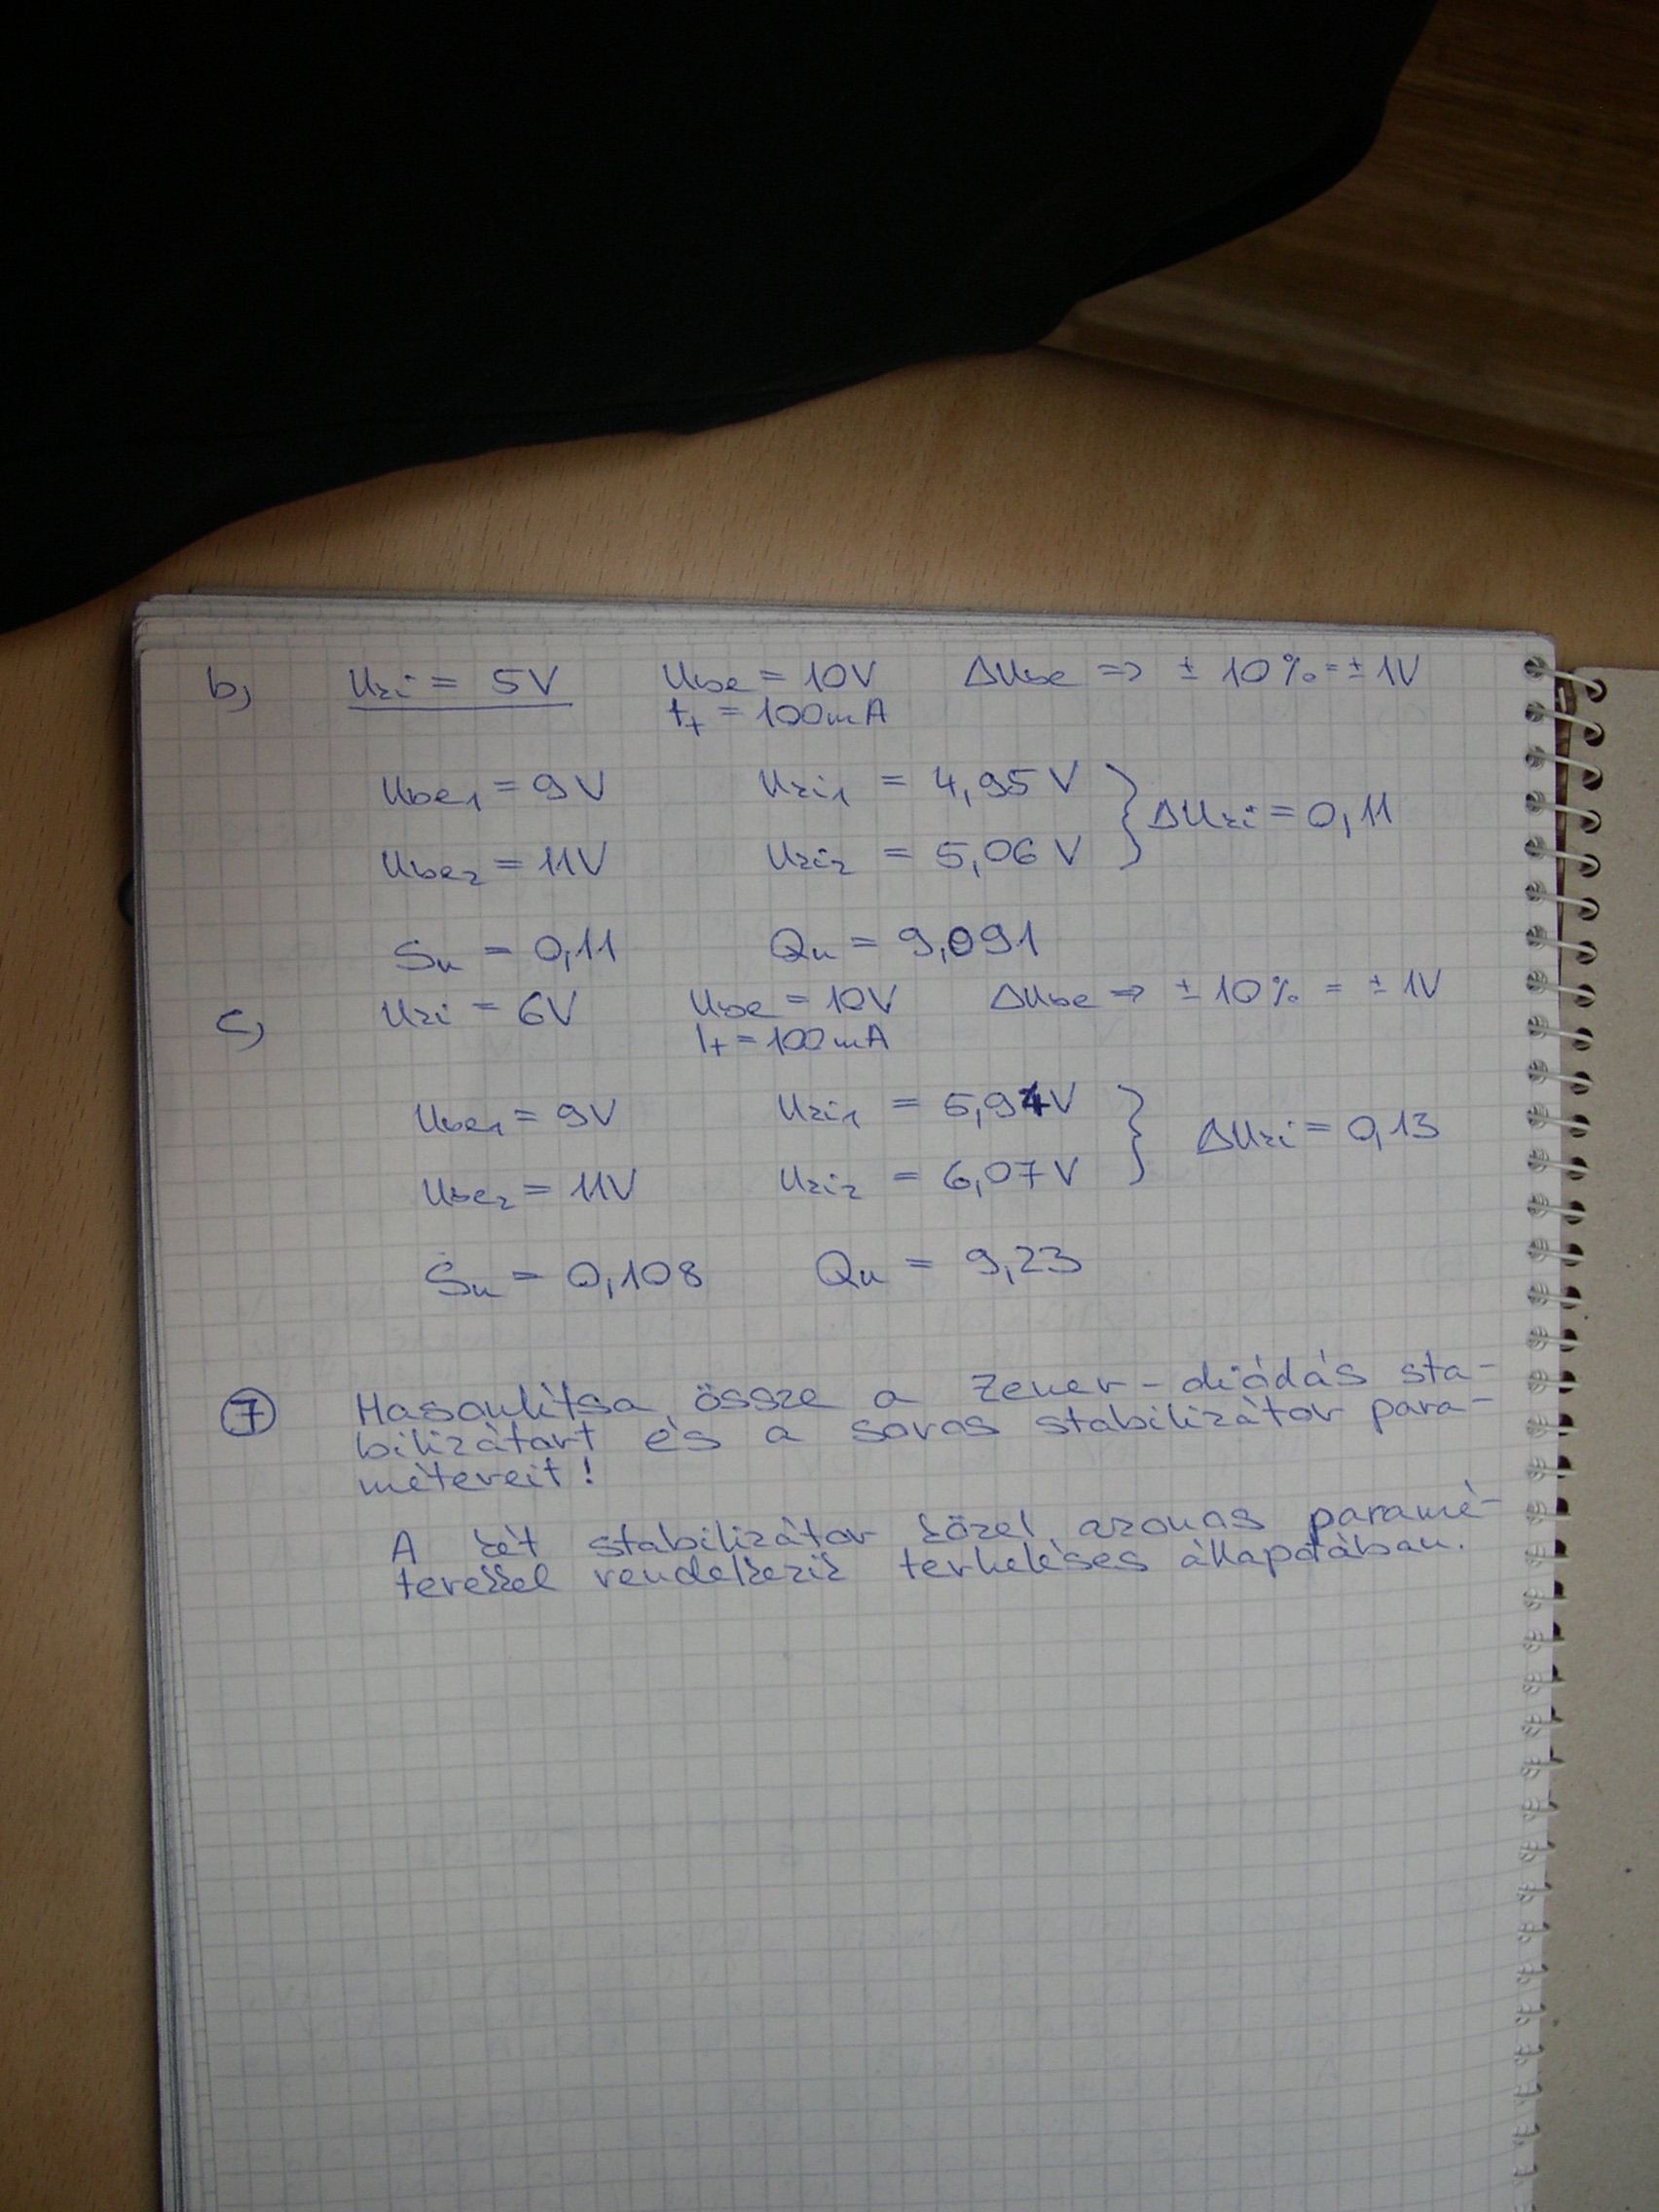 b) Uki = 5V Ube = 10V ΔUbe => ± 10% = ± 1V
It = 100mA
Ube1 = 9V Uki1 = 4,95 V } ΔUki = 0,11
Ube2 = 11V Uki2 = 5,06 V
Su = 0,11 Qu = 9,091
c) Uki = 6V Ube = 10V ΔUbe => ± 10% = ± 1V
It = 100mA
Ube1 = 9V Uki1 = 5,94V } ΔUki = 0,13
Ube2 = 11V Uki2 = 6,07V
Su = 0,108 Qu = 9,23
7 Hasonlítsa össze a Zener-diódás sta-
bilizátort és a soros stabilizátor para-
métereit!
A két stabilizátor közel azonos paramé-
terekkel rendelkezik terheléses állapotában.